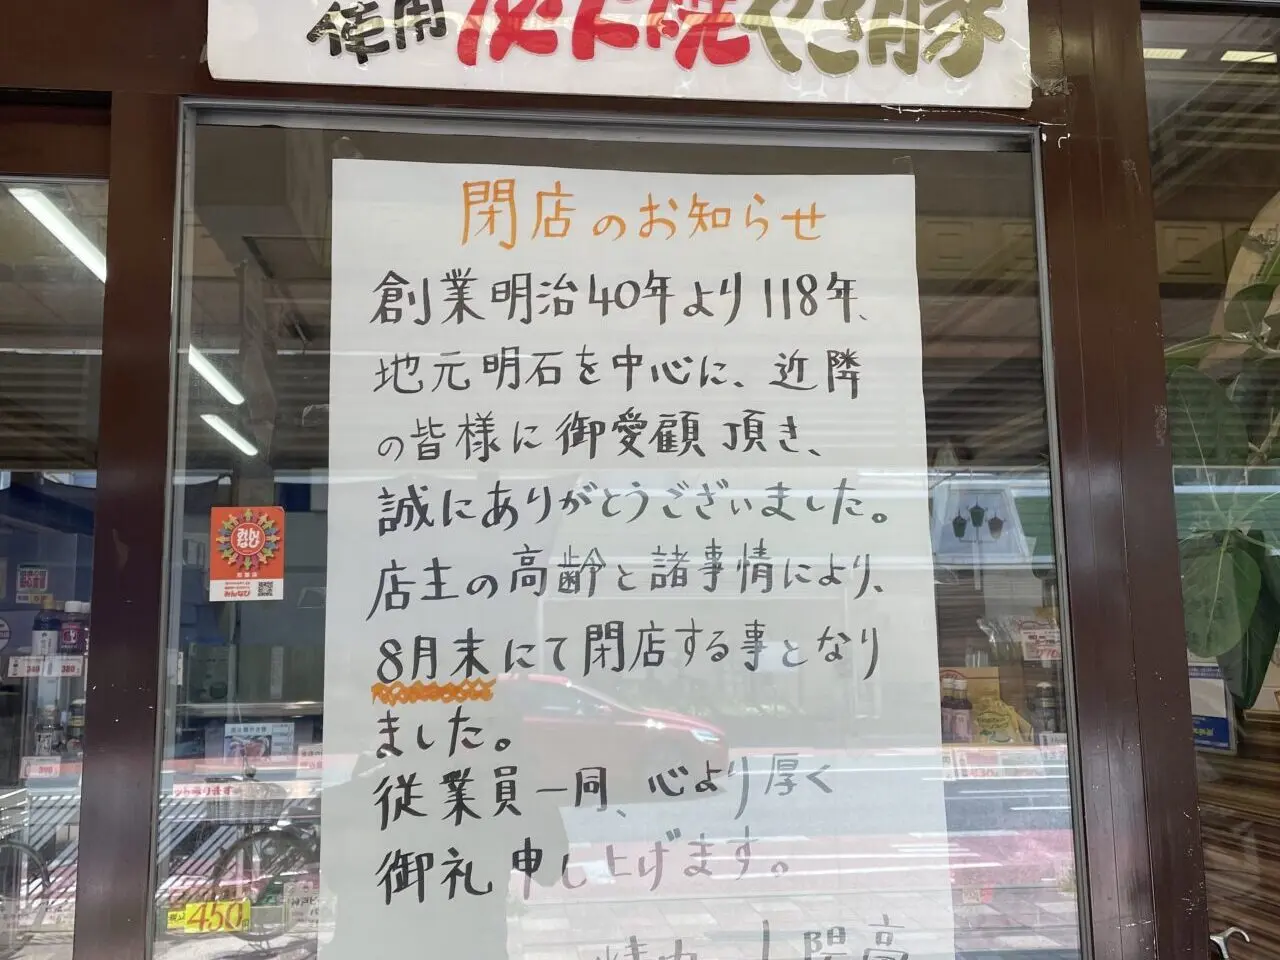 使用 炭火焼やき豚
閉店のお知らせ
創業明治40年より118年、
地元明石を中心に、近隣
の皆様に御愛顧頂き、
誠にありがとうございました。
店主の高齢と諸事情により、
8月末にて閉店する事となり
ました。
従業員一同、心より厚く
御礼申し上げます。
みんなび
450